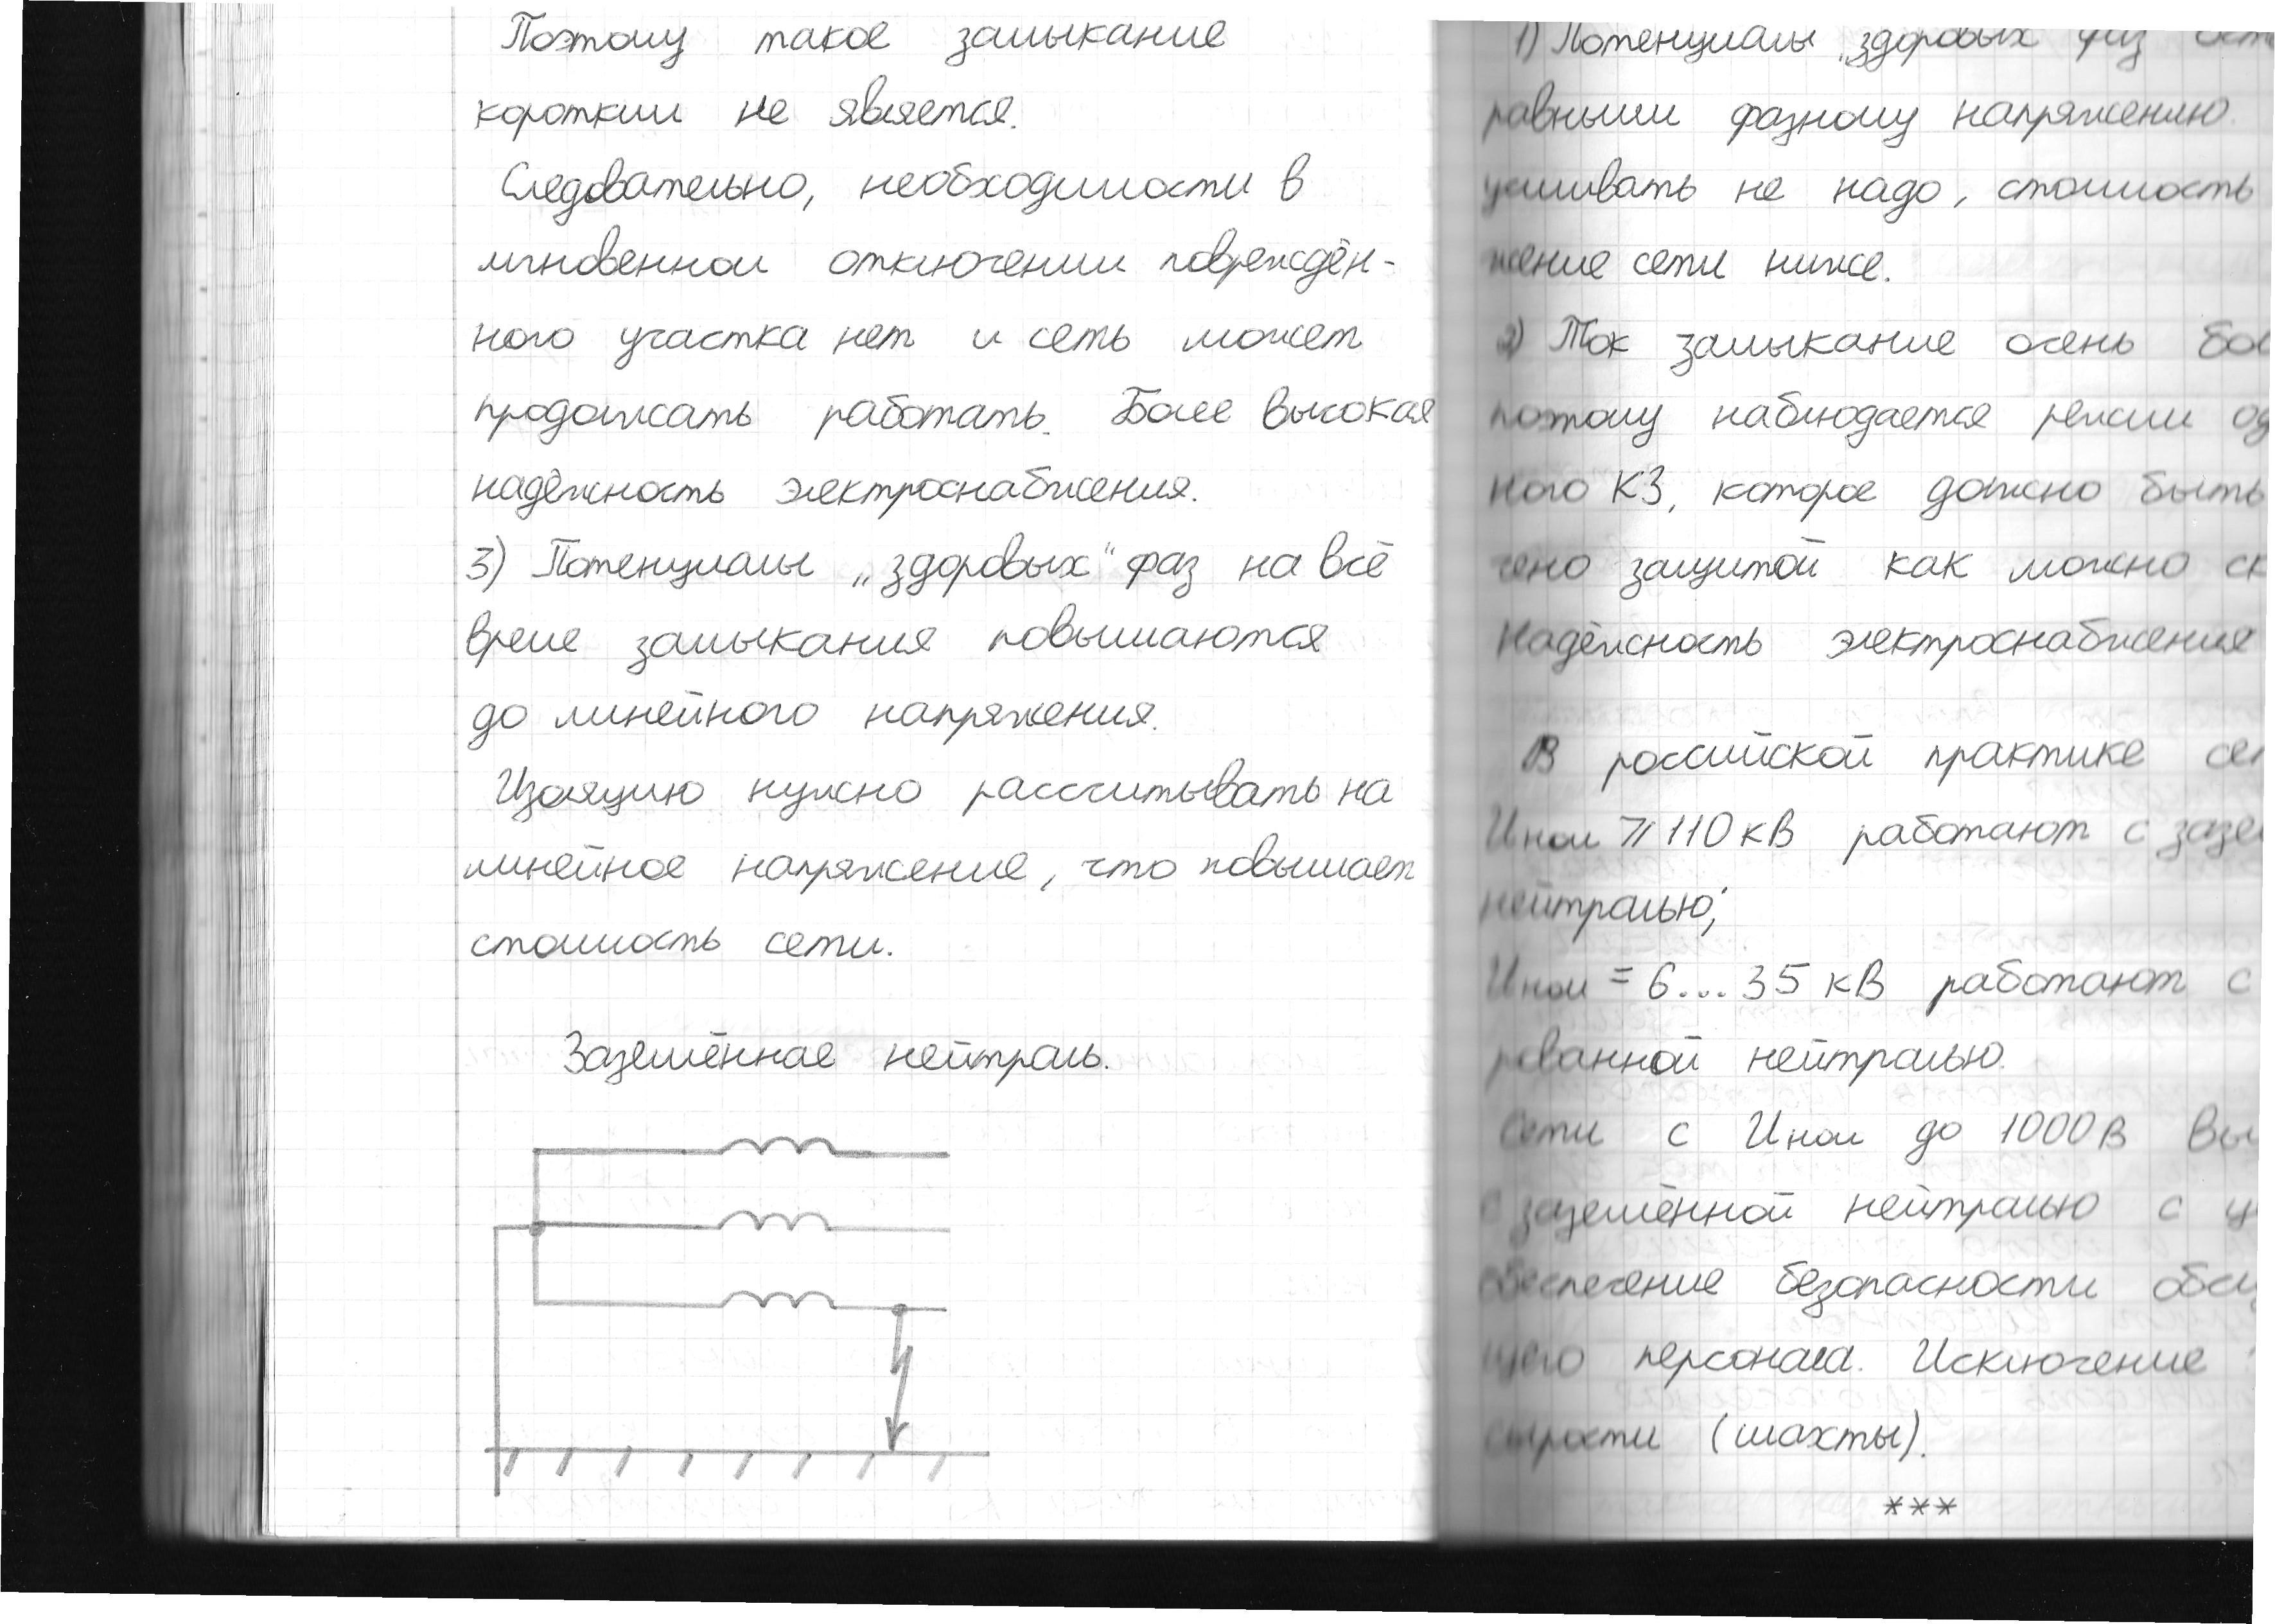 Поэтому такое замыкание
коротким не является.
Следовательно, необходимости в
мгновенном отключении повреждён-
ного участка нет и сеть может
продолжать работать. Более высокая
надёжность электроснабжения.
3) Потенциалы „здоровых“ фаз на всё
время замыкания повышаются
до линейного напряжения.
Изоляцию нужно рассчитывать на
линейное напряжение, что повышает
стоимость сети.
Заземлённая нейтраль.
1) Потенциалы „здоровых фаз
равными фазному напряжению.
усиливать не надо, стоимость
жение сети ниже.
2) Ток замыкание очень
поэтому наблюдается режим
ного КЗ, которое должно быть
чено защитой как можно
Надёжность электроснабжения
В российской практике
Uном ⩾ 110 кВ работают с
нейтралью;
Uном = 6...35 кВ работают с
рованной нейтралью.
Сети с Uном до 1000 В
с заземлённой нейтралью с
обеспечение безопасности
щего персонала. Исключение
сырости (шахты).
***